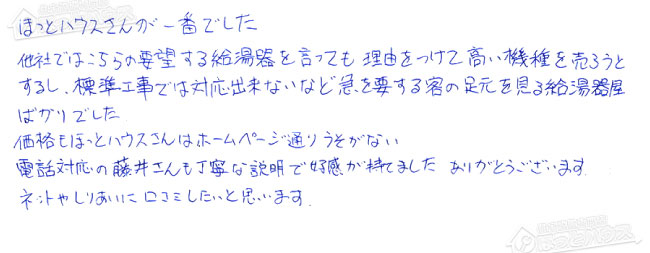 ほっとハウスさんが一番でした
他社ではこちらの要望する給湯器を言っても 理由をつけて高い機種を売ろうと
するし、標準工事では対応出来ないなど急を要する客の足元を見る給湯器屋
ばかりでした
価格もほっとハウスさんはホームページ通りうそがない
電話対応の藤井さんも丁寧な説明で好感が持てました ありがとうございます
ネットやしりあいに口コミしたいと思います.